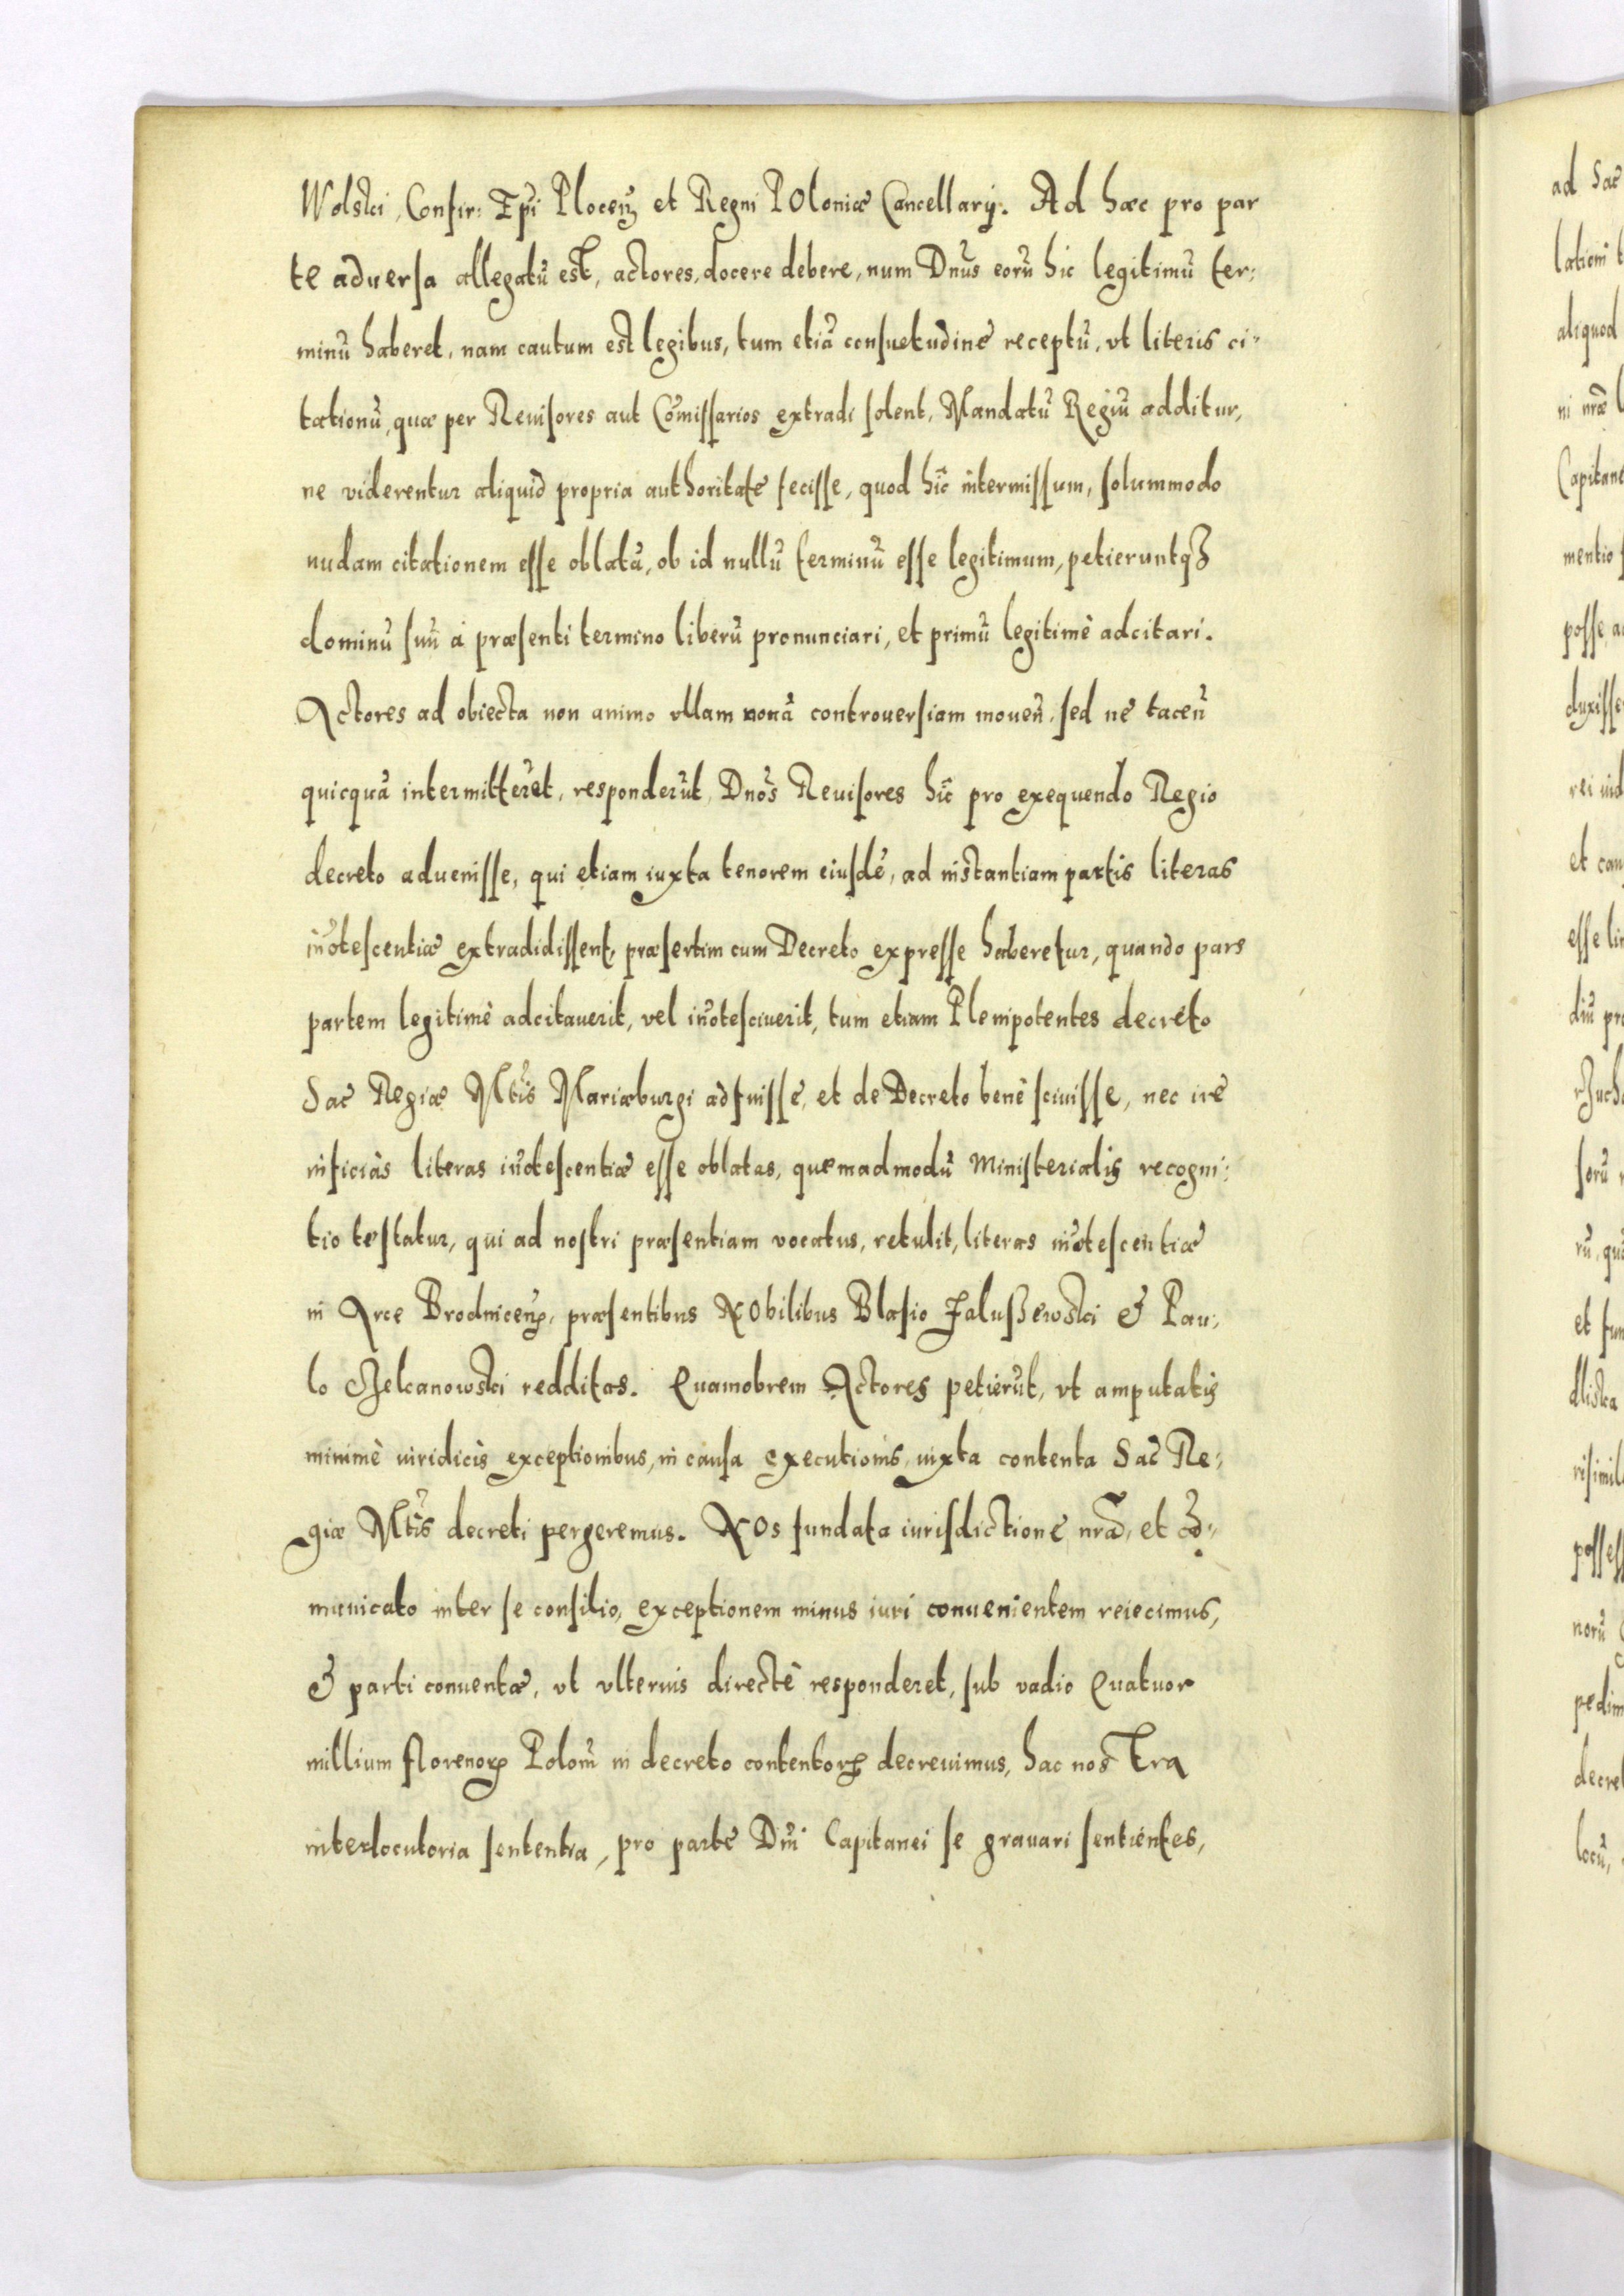 Wolski, Confir: Epi Plocen et Regni POloniæ Cancellarij. Ad hæc pro par
te aduersa allegatū est, actores, docere debere, num Dnūs eorū hic legitimū ter:
minū haberet, nam cautum est legibus, tum etiā consuetudine receptū, vt literis ci-
tationū, quæ per Reuisores aut Cōmissarios extradi solent, Mandatū Regiū additur,
ne viderentur aliquid propria authoritate fecisse, quod hîc intermissum, solummodo
nudam citationem esse oblatā, ob id nullū terminū esse legitimum, petieruntqȝ
dominū suū à præsenti termino liberū pronunciari, et primū legitimè adcitari.
Actores ad obiecta non animo vllam nouā controuersiam mouen̄, sed ne tacen̄
quicquā intermitterēt, responderūt, Dnōs Reuisores hîc pro exequendo Regio
decreto aduenisse, qui etiam iuxta tenorem eiusdē, ad instantiam partis literas
iñotescentiæ extradidissent, præsertim cum Decreto expresse haberetur, quando pars
partem legitimè adcitauerit, vel iñotesciuerit, tum etiam Plenipotentes decreto
Sac Regiæ Mtis Mariæburgi adfuisse, et de Decreto benè sciuisse, nec ire
inficiàs literas iñotescentiæ esse oblatas, quemadmodū Ministerialis recogni:
tio testatur, qui ad nostri præsentiam vocatus, retulit, literas iñotescentiæ
in Arce Brodnicen, præsentibus NObilibus Blasio Jalußewski & Pau:
lo Zelcanowski redditas. Quamobrem Actores petierūt, vt amputatis
minimè iuridicis exceptionibus, in causa executionis, iuxta contenta Sac Re:
giæ Mtis decreti pergeremus. NOs fundata iurisdictione nrā, et cō-
municato inter se consilio, exceptionem minus iuri conuenientem reiecimus,
& parti conuentæ, vt vlterius directè responderet, sub vadio Quatuor
millium florenorꝝ Polon̄ in decreto contentorꝝ decreuimus, hac nostra
interlocutoria sententia, pro parte Dnī Capitanei se grauari sentientes,